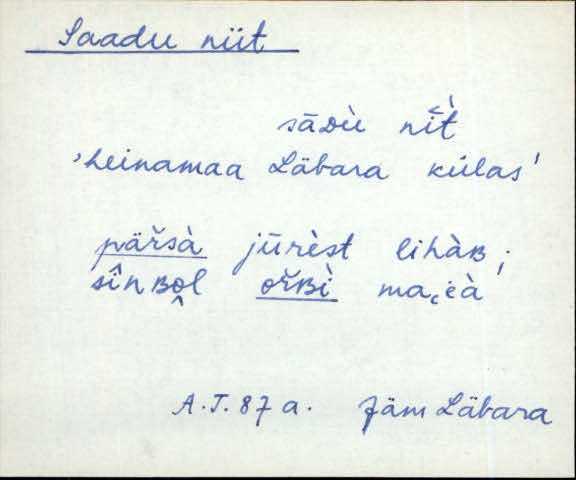 Saadu niit
sāᴅù nī̆t̀
'heinamaa Läbara külas'
pär̆sà jūrèst lihàʙ;
sînʙo̭l or̆ʙì
A.T. 87 a. Jäm Läbara